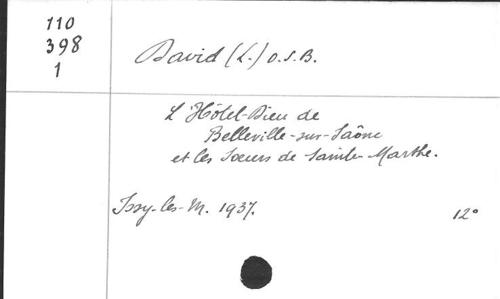 110
398
1
David (L.) O.S.B.
L'Hôtel-Dieu de
Belleville-sur-Saône
et les Sœurs de Sainte-Marthe.
Issy-les-M. 1937.
12°